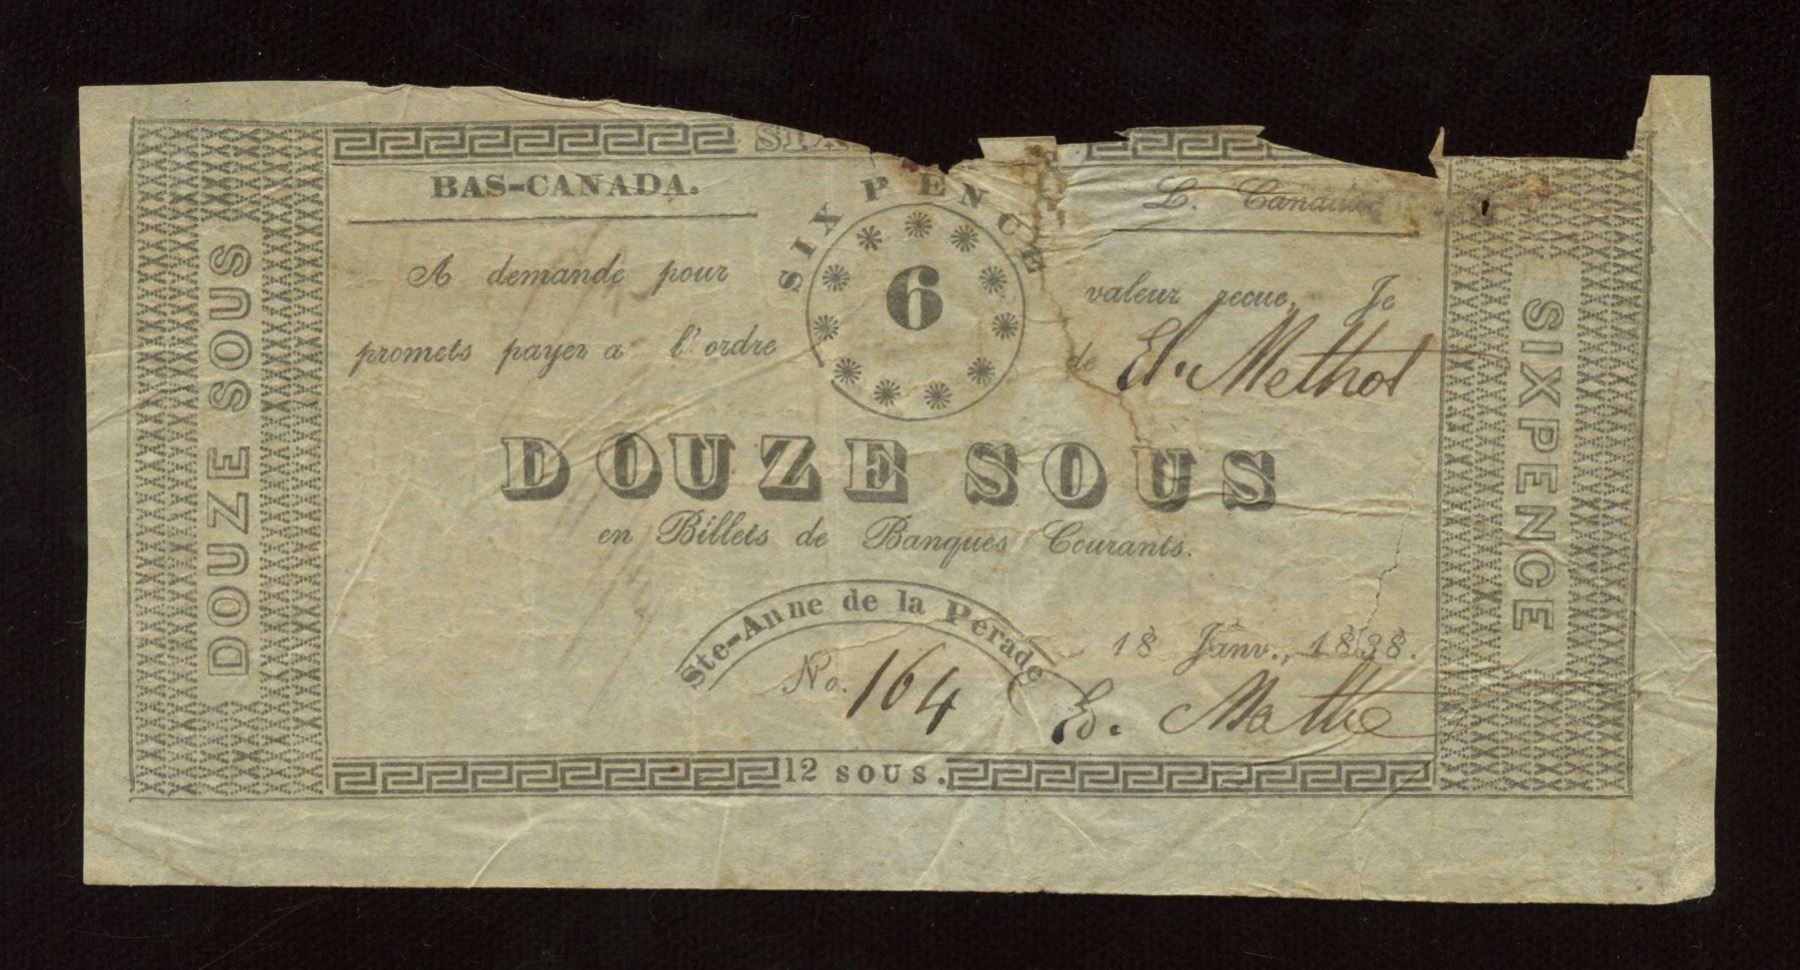 BAS-CANADA.
L. Canada
SIX PENCE
6
A demande pour valeur recue, Je
promets payer a l'ordre de Ed. Methot
DOUZE SOUS
en Billets de Banques Courants.
Ste-Anne de la Perade
18 Janv., 1838.
No. 164
Ed.
12 SOUS.
DOUZE SOUS
SIXPENCE